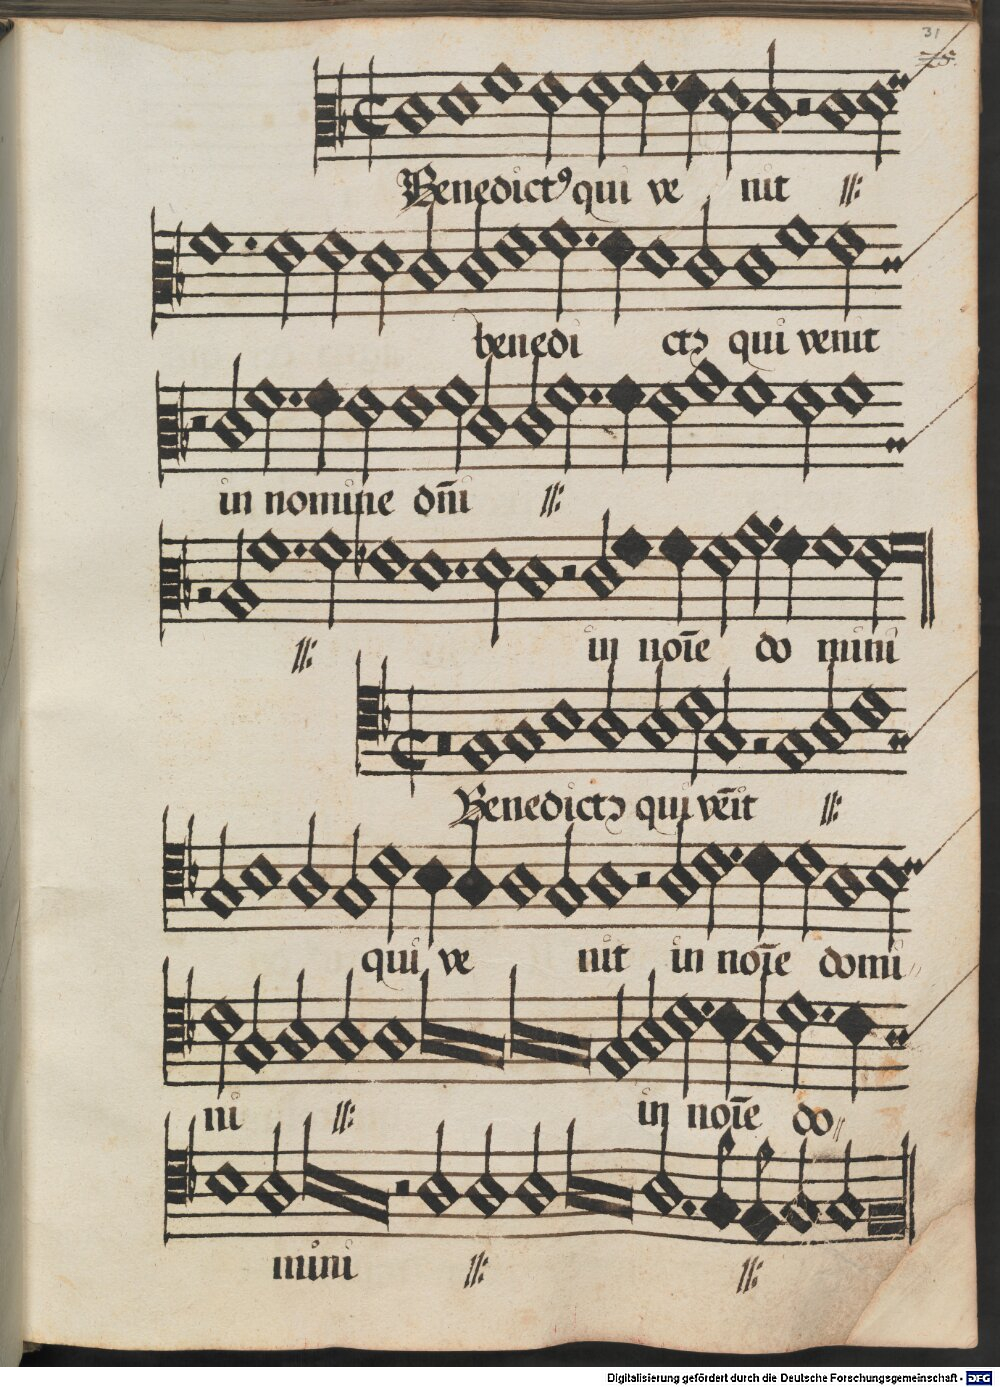 31
25.
Benedictꝰ qui ve nit :||:
benedi ctꝰ qui venit
in nomine dn̄i :||:
:||: in noīe do mini
Benedictꝰ qui vēit :||:
qui ve nit in noīe domi
ni :||: in noīe do
mini :||: :||:
Digitalisierung gefördert durch die Deutsche Forschungsgemeinschaft - DFG